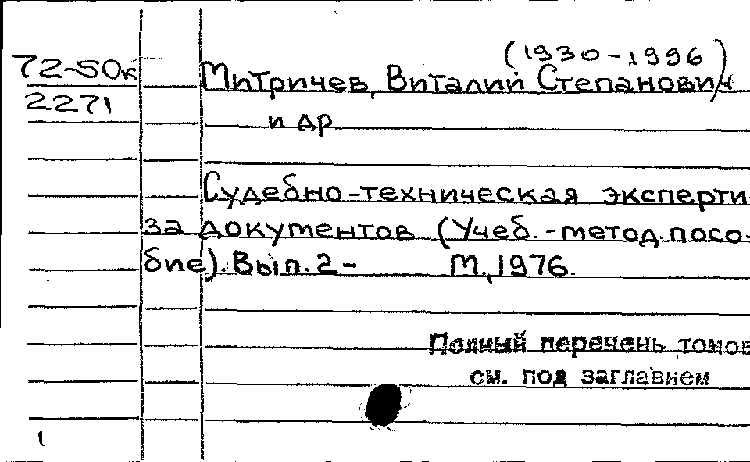 (1930-1996)
72-50к Митричев, Виталий Степанович
2271
и др
Судебно-техническая эксперти-
за документов (Учеб.-метод.посо-
бие). Вып.2- М., 1976.
Полный перечень томов
см. под заглавием
1